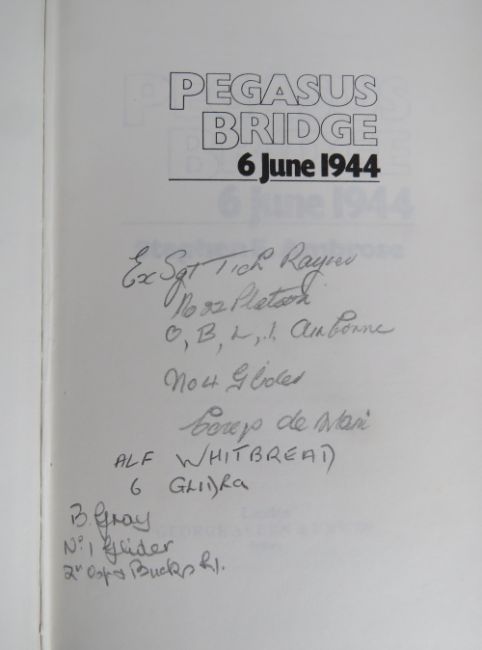 PEGASUS
BRIDGE
6 June 1944
Ex Sgt Tich Rayner
No 22 Platoon
O, B, L, I. Airborne
No 4 Glider
de
ALF WHITBREAD
6 GLIDER
B. Gray
No 1 Glider
2nd Ox & Bucks L.I.
London